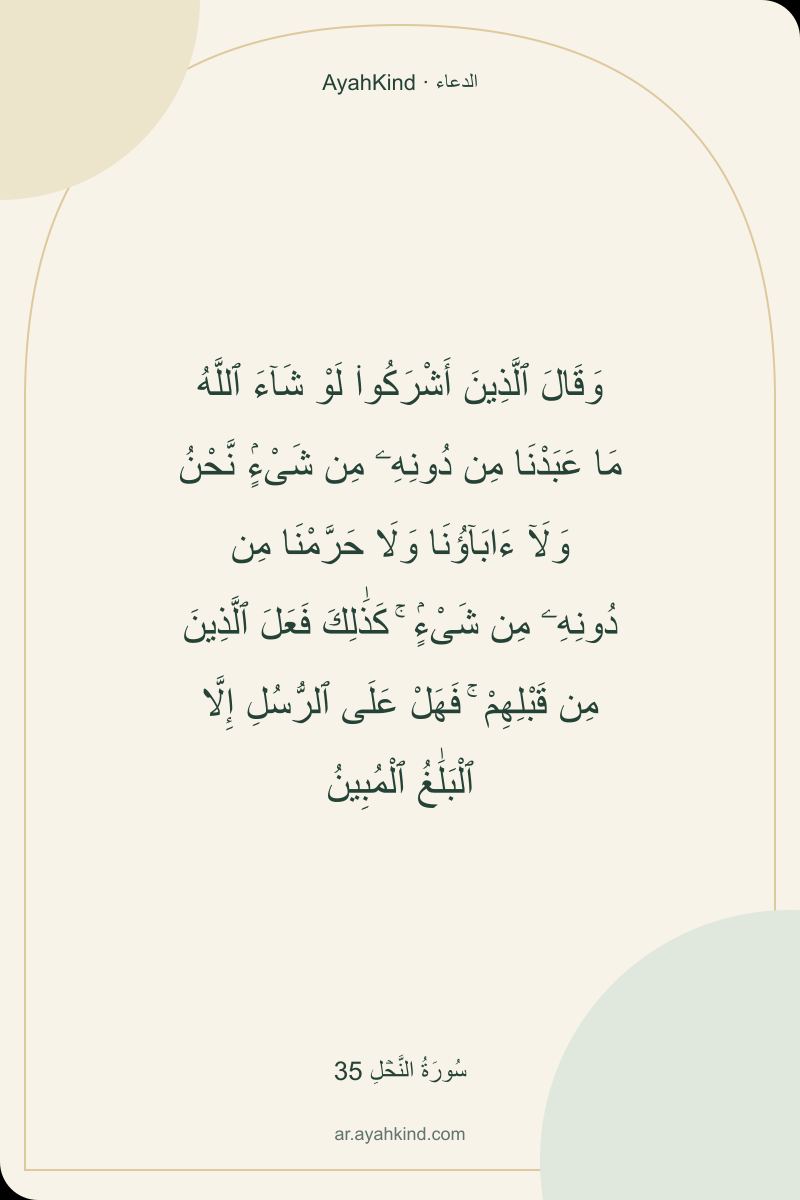 الدعاء · AyahKind
وَقَالَ ٱلَّذِينَ أَشْرَكُوا۟ لَوْ شَآءَ ٱللَّهُ
مَا عَبَدْنَا مِن دُونِهِۦ مِن شَىْءٍۢ نَّحْنُ
وَلَآ ءَابَآؤُنَا وَلَا حَرَّمْنَا مِن
دُونِهِۦ مِن شَىْءٍۢ ۚ كَذَٰلِكَ فَعَلَ ٱلَّذِينَ
مِن قَبْلِهِمْ ۚ فَهَلْ عَلَى ٱلرُّسُلِ إِلَّا
ٱلْبَلَٰغُ ٱلْمُبِينُ
سُورَةُ النَّحۡلِ 35
ar.ayahkind.com